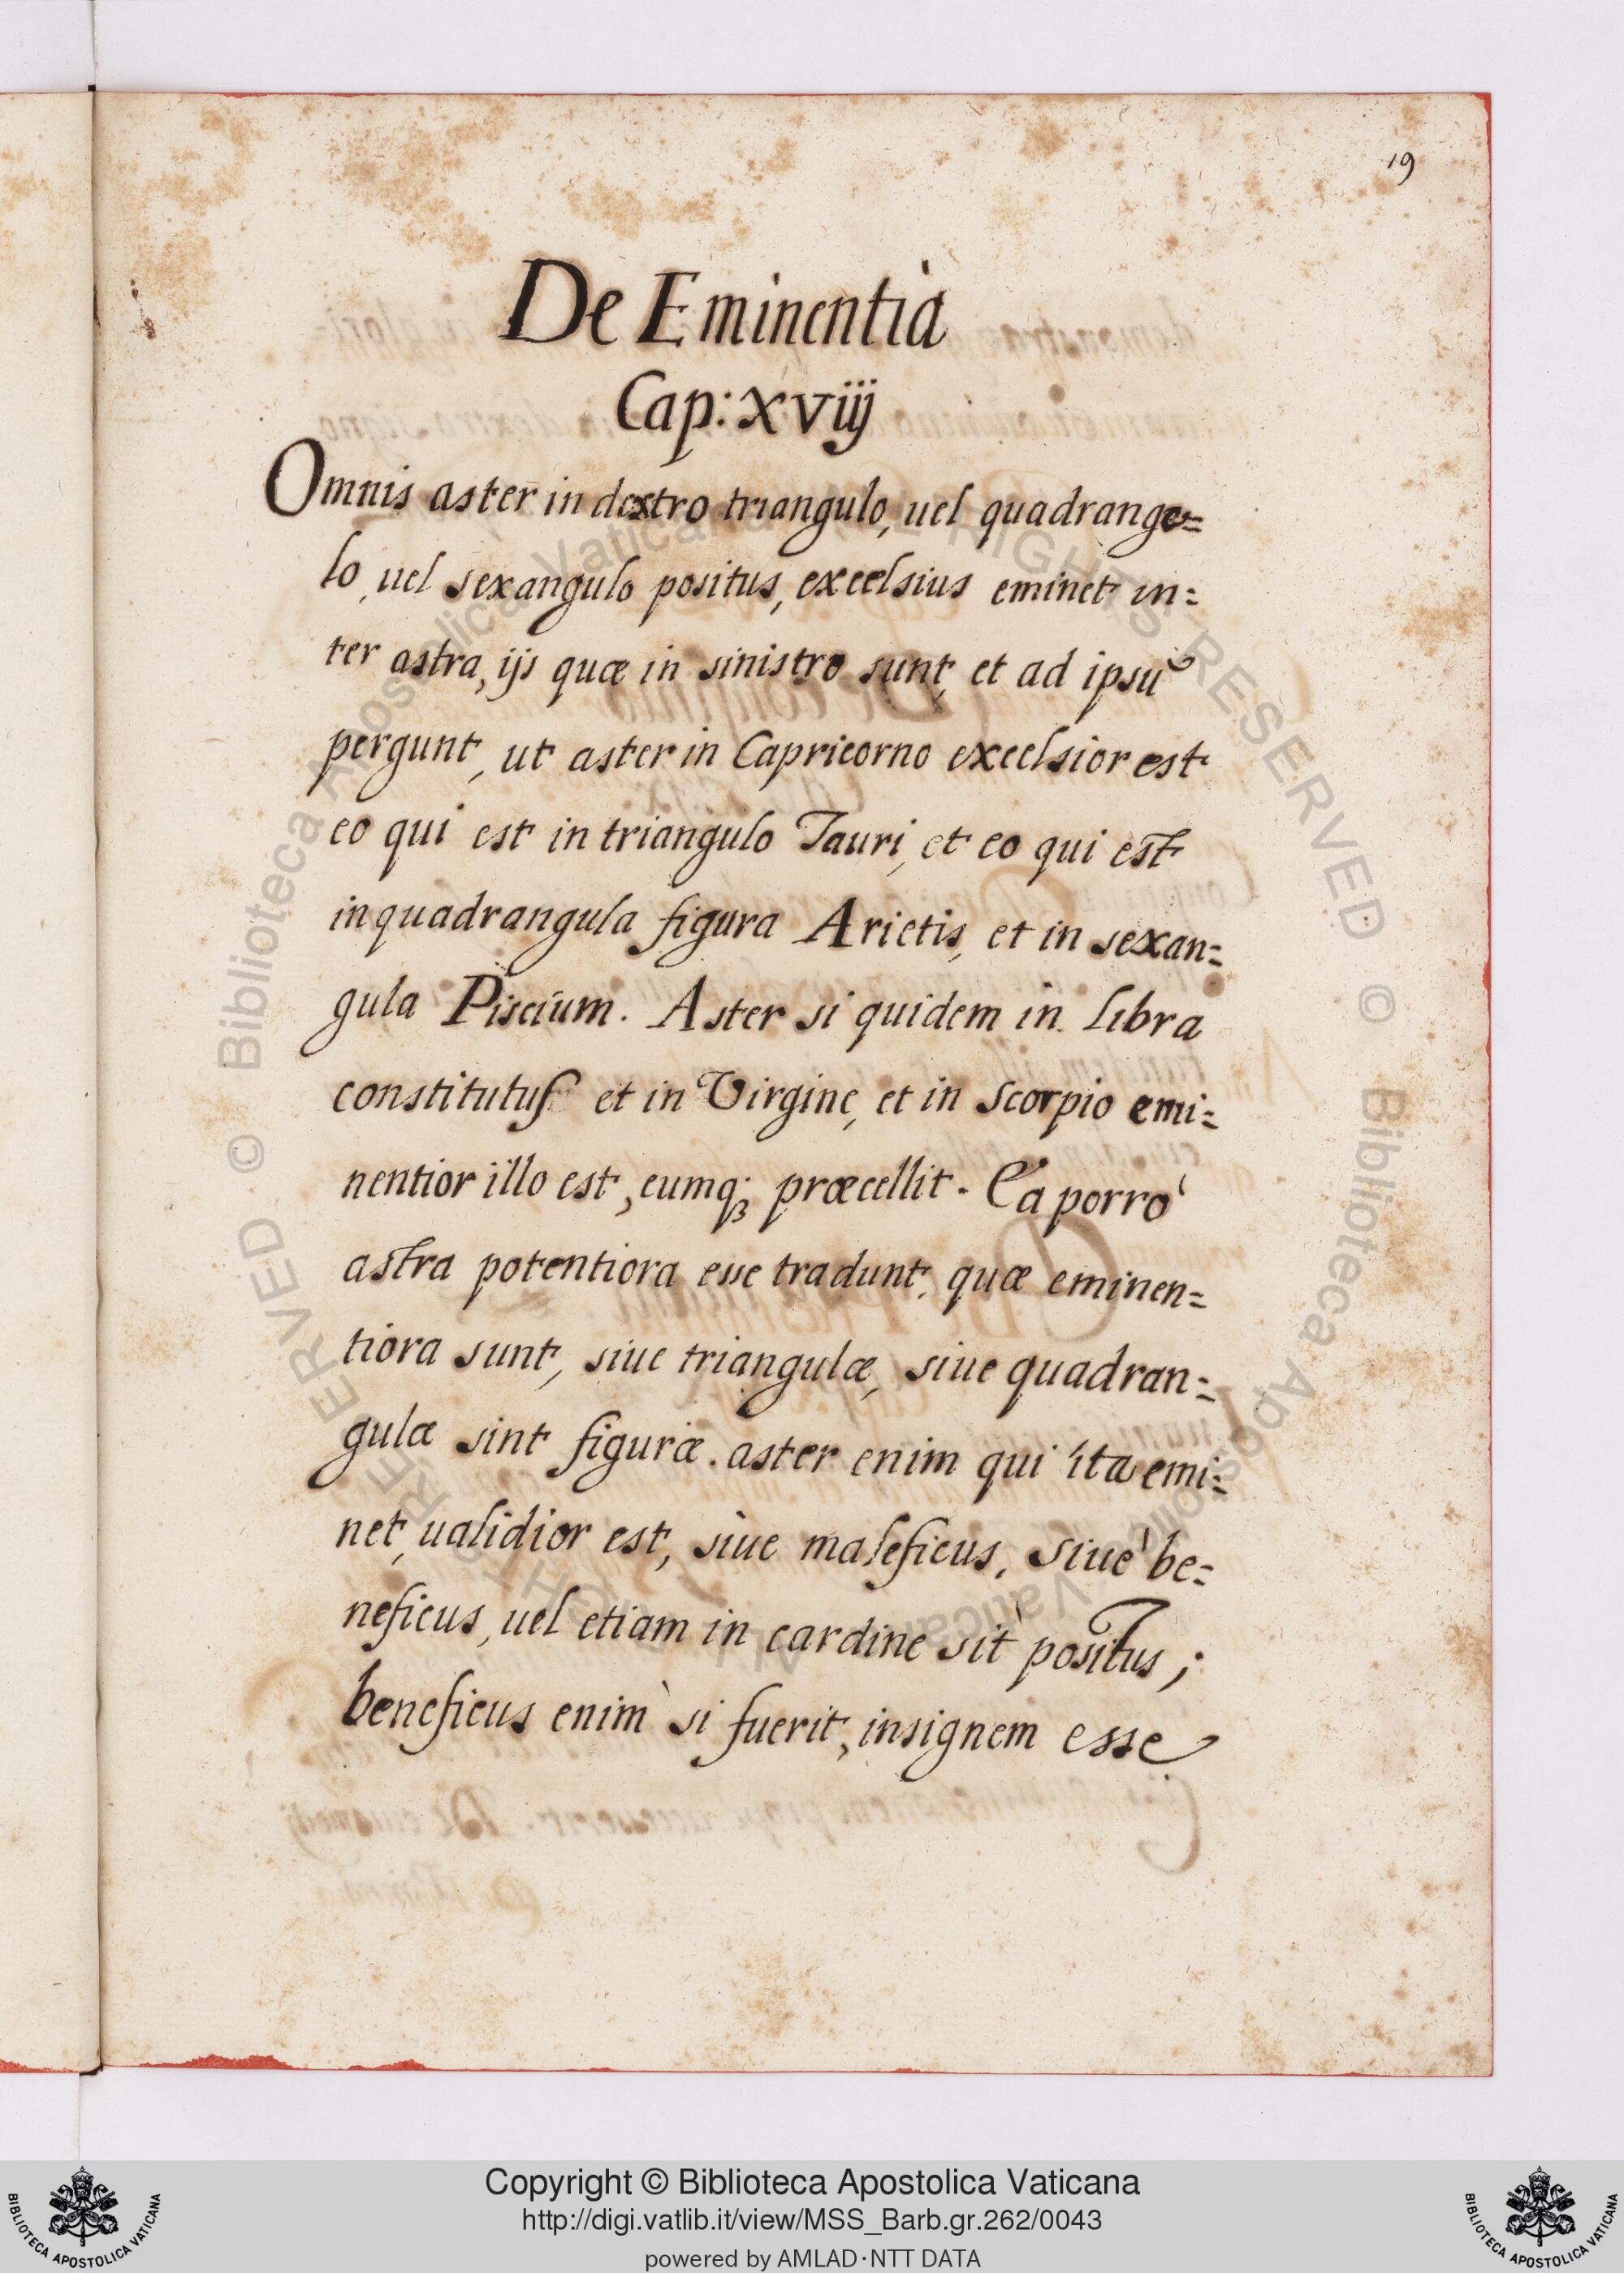 19
De Eminentia
Cap: xviij
Omnis aster in dextro triangulo, uel quadrangu=
lo, uel sexangulo positus, excelsius eminet in=
ter astra, ijs quæ in sinistro sunt, et ad ipsũ
pergunt, ut aster in Capricorno excelsior est
eo qui est in triangulo Tauri, et eo qui est
in quadrangula figura Arietis, et in sexan=
gula Piscium. Aster si quidem in Libra
constitutus et in Virgine, et in Scorpio emi=
nentior illo est, eumq; præcellit. Ea porrò
astra potentiora esse tradunt, quæ eminen=
tiora sunt, siue triangulæ, siue quadran=
gulæ sint figuræ. aster enim qui ita emi=
net, ualidior est, siue maleficus, siue be=
neficus, uel etiam in cardine sit positus;
beneficus enim si fuerit, insignem esse
Copyright © Biblioteca Apostolica Vaticana
http://digi.vatlib.it/view/MSS_Barb.gr.262/0043
powered by AMLAD·NTT DATA
BIBLIOTECA APOSTOLICA VATICANA
BIBLIOTECA APOSTOLICA VATICANA